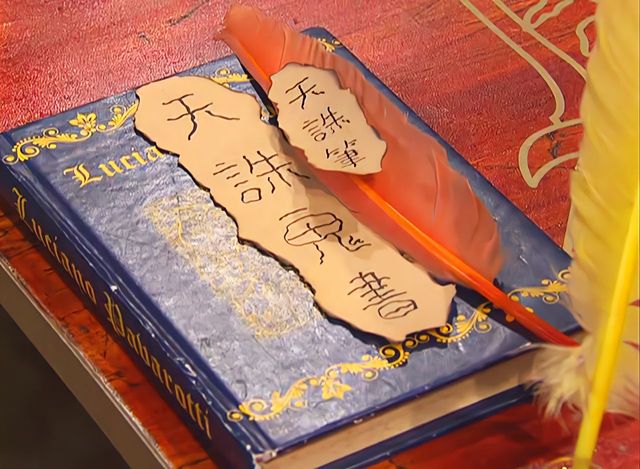 天誅鬼書
天誅筆
Lucia
Luciano Pavarotti